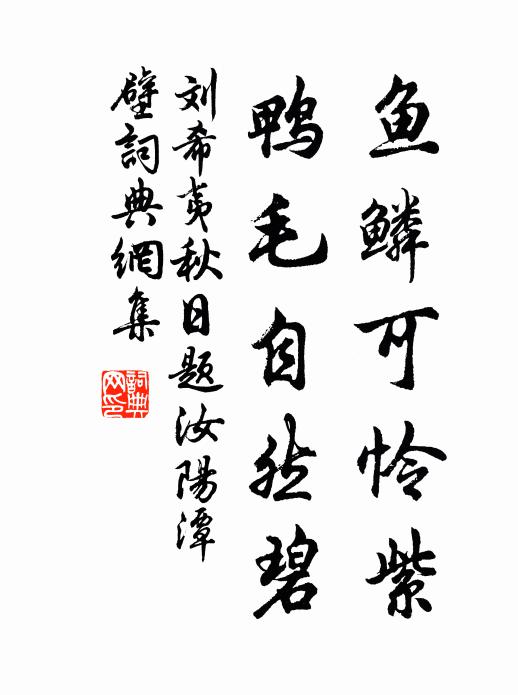 鱼鳞可怜紫
鸭毛自然碧
刘希夷秋日题汝陽潭
壁詞典網集
詞典网印